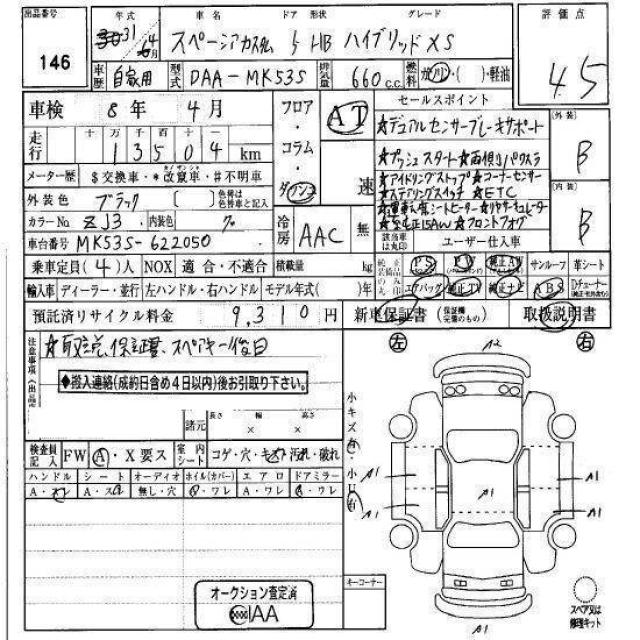 出品番号 146
年式 31年 4月
車名 スペーシアカスタム
ドア 形状 5 HB
グレード ハイブリッドXS
評価点 4.5
車歴 自家用
型式 DAA-MK53S
排気量 660 c.c.
燃料 ガソリン・( )・軽油
車検 8年 4月
走行 十万千百十 13504 km
メーター歴 $交換車・*改竄車・#不明車
外装色 ブラック [ ] 色替は色替車と記入
カラーNo ZJ3 内装色 ク
車台番号 MK53S-622050
フロア・コラム・ダウンコ
AT 速
冷房 AAC 無
セールスポイント
★デュアルセンサーブレーキサポート
★プッシュスタート★両側パワスラ
★アイドリングストップ★コーナーセンサー
★ステアリングスイッチ★ETC
★運転席シートヒーター★リヤサーキュレーター
★純正15AW★フロントフォグ
外装 B
内装 B
該当車は丸印 ユーザー仕入車
乗車定員(4)人 NOX 適合・不適合 積載量 kg
純正装備品のみ丸印 PS PW 純正AW サンルーフ 革シート
エアバッグ 純正TV 純正ナビ ABS Dチューナー
輸入車 ディーラー・並行 左ハンドル・右ハンドル モデル年式( )年
預託済リサイクル料金 9,310円
新車保証書 (保証欄完備のもの) 取扱説明書
注意事項(出品
★取説、保証書、スペアキー後日
◆搬入連絡(成約日含め4日以内)後お引取り下さい。
諸元 長さ × 幅 × 高さ
検査員記入 FW A・X要ス
室内シート コゲ・穴・キズ・汚れ・破れ
ハンドル シート オーディオ ホイル(カバー) エアロ ドアミラー
A・スレ A・スレ 無し・穴 A・ワレ A・ワレ A・ワレ
左 右
小キズ有 小凹有
A2
A1
A1
A1
A1
A1
A1
A1
キーコーナー
オークション査定済
IAA
スペア又は修理キット